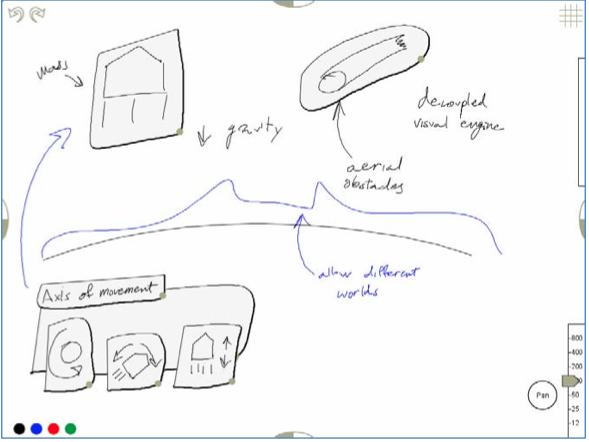 mass
↓ gravity
decoupled
visual engine
aerial
obstacles
allow different
worlds
Axis of movement
Pan
800
400
200
50
25
12